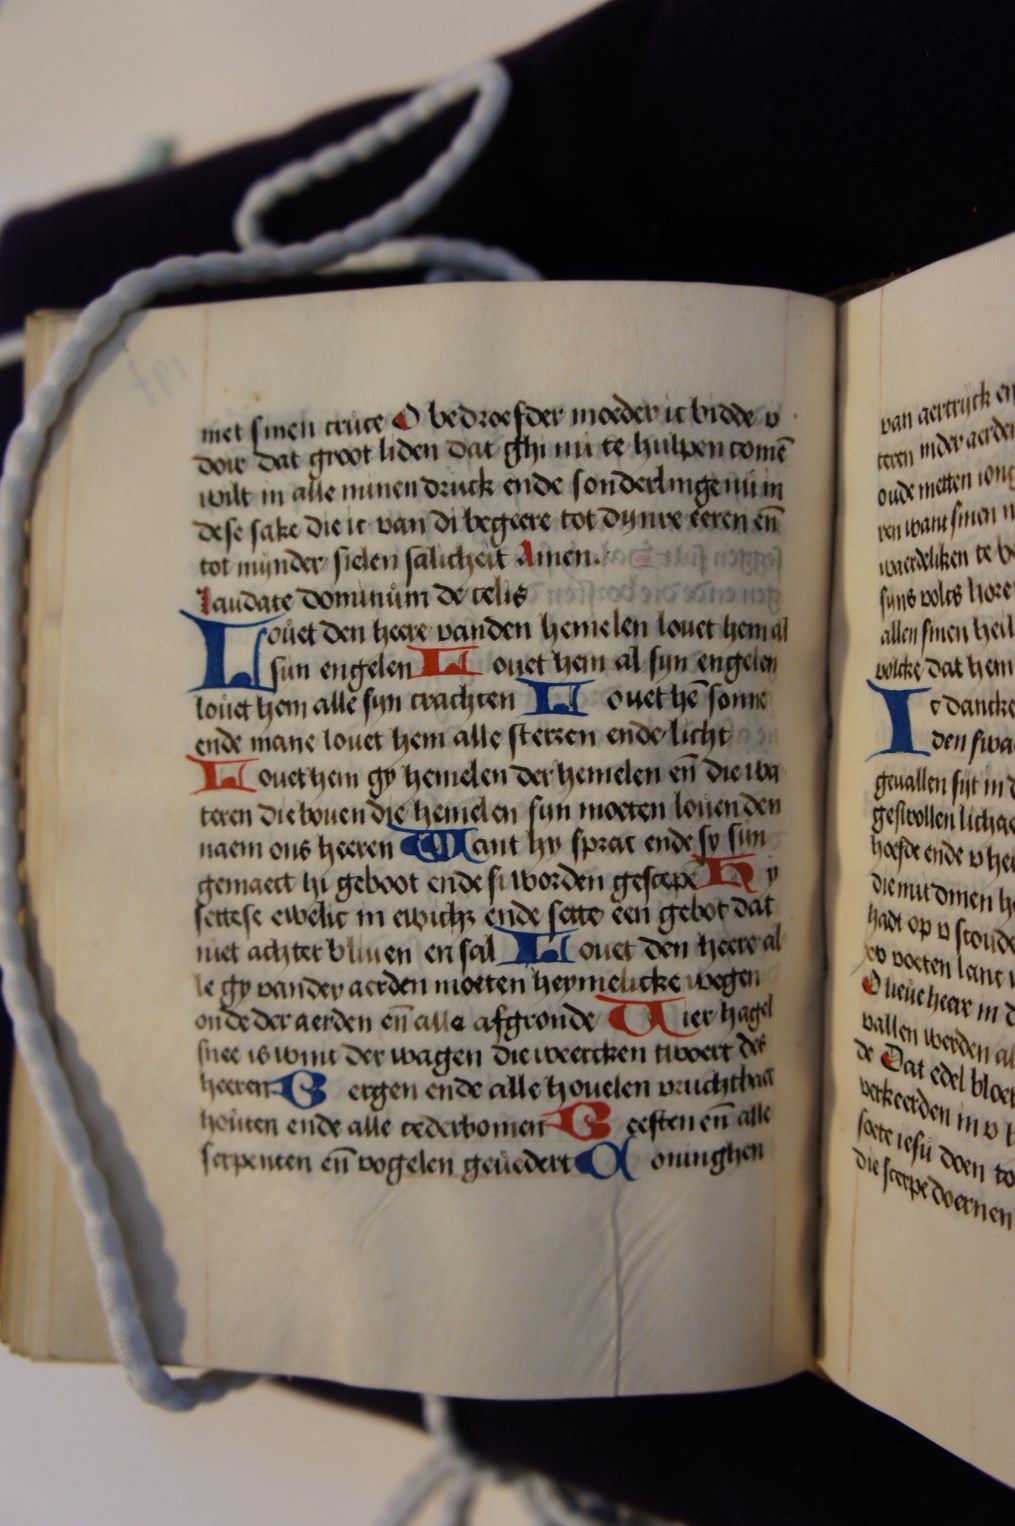 met sinen cruce O bedroefder moeder ic bidde v
doir dat groot liden dat ghi mi te hulpen comē
wilt in alle minen druck ende sonderlinge nu in
dese sake die ic van di begeere tot dijnre eeren en̄
tot mijnder sielen salicheit Amen.
Laudate dominum de celis
Louet den heere vanden hemelen louet hem al
sijn engelen Louet hem al sijn engelen
louet hem alle sijn crachten Louet hē sonne
ende mane louet hem alle sterren ende licht
Louet hem gy hemelen der hemelen en̄ die wa
teren die bouen die hemelen sijn moeten louen den
naem ons heeren Want hy sprac ende sy sijn
gemaect hi geboot ende si worden gescepē Hy
settese ewelic in ewich; ende sette een gebot dat
niet achter bliuen en sal Louet den heere al
le gy vander aerden moeten heymelicke wegen
onde der aerden en̄ alle afgronde Vier hagel
snee is wint der wagen die weercken twoert des
heeren Bergen ende alle houelen vruchtbaer
houten ende alle cederbomen Beesten en̄ alle
serpenten en̄ vogelen geuedert Coninghen
van aertrijck en
teren inder aerden
oude metten iong
ren want sinen n
waerdeliken te v
sijns volcs hore
allen sinen heil
volcke dat hem
Ic dancke
den swa
geuallen sijt in
geswollen lichae
hoefde ende v hei
die mit dinen he
hadt op v scoude
en voeten lanc
O lieue heere in d
vallen werden al
de Dat edel bloet
verkeerden in v b
soete iesu doen to
die scerpe doernen